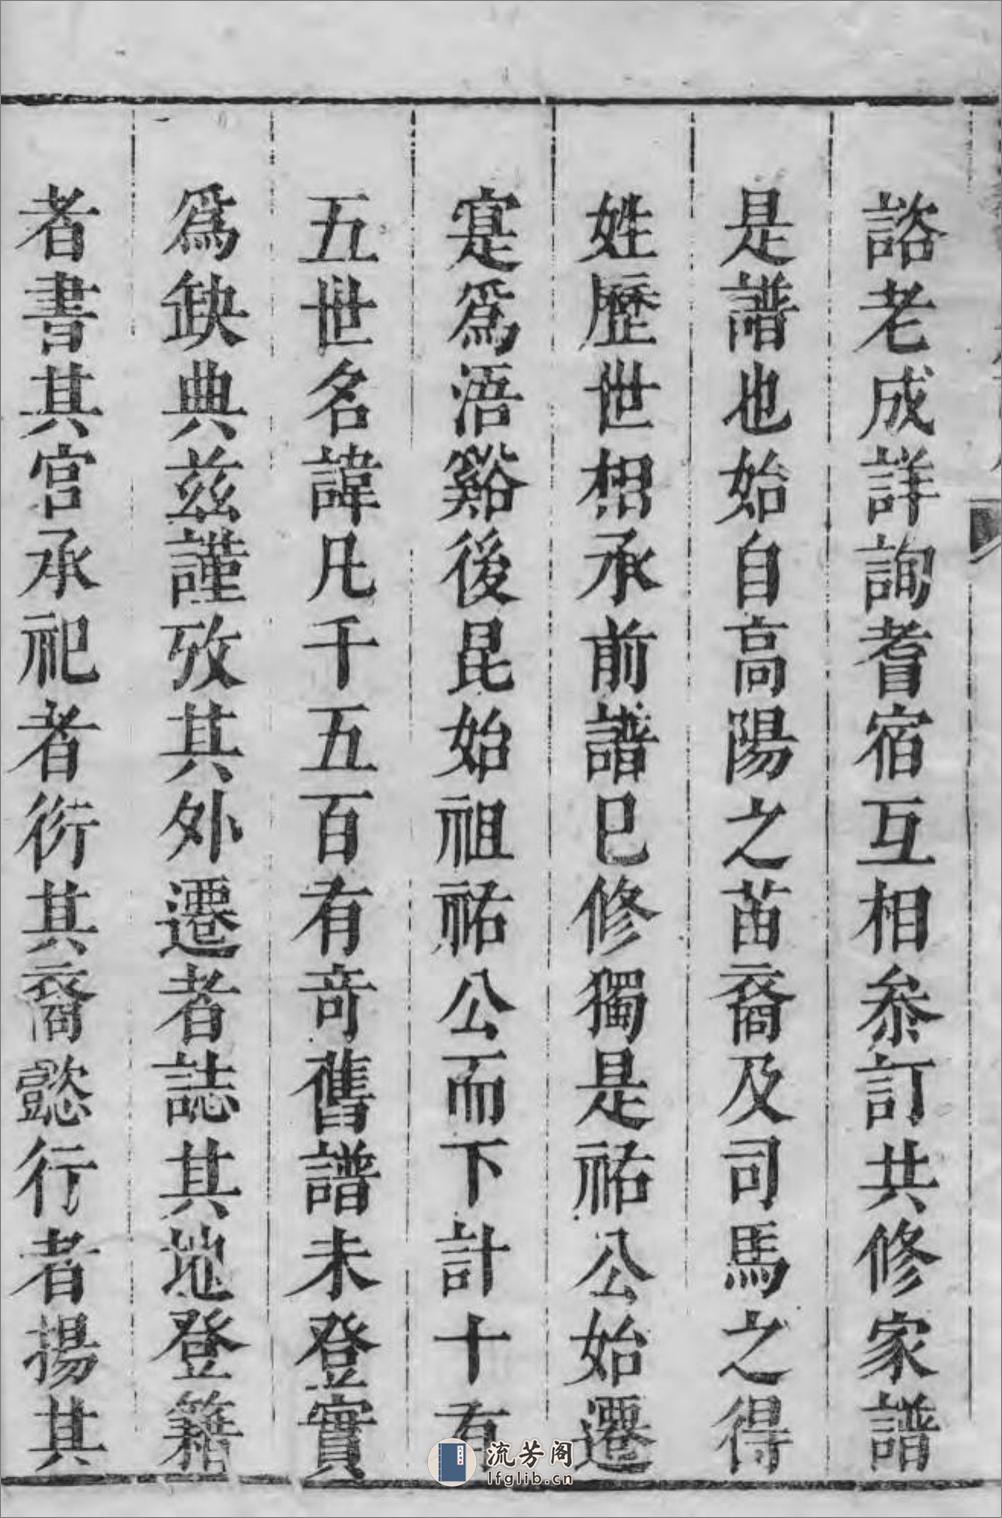 諮老成詳詢耆宿互相叅訂共修家譜
是譜也始自高陽之苗裔及司馬之得
姓歷世相承前譜已修獨是祐公始遷
寔爲浯谿後昆始祖祐公而下計十有
五世名諱凡千五百有奇舊譜未登實
爲缺典茲謹攷其外遷者誌其地登籍
者書其官承祀者衍其裔懿行者揚其
流芳阁
lfglib.cn